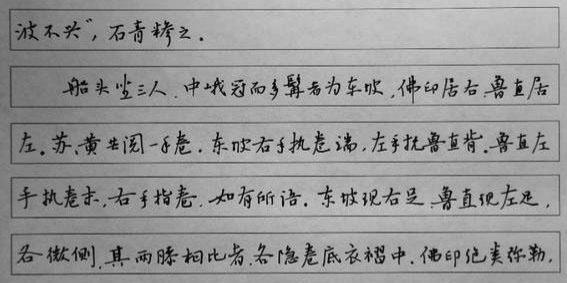 波不兴”，石青糁之。
船头坐三人，中峨冠而多髯者为东坡，佛印居右，鲁直居
左。苏、黄共阅一手卷。东坡右手执卷端，左手抚鲁直背。鲁直左
手执卷末，右手指卷，如有所语。东坡现右足，鲁直现左足，
各微侧，其两膝相比者，各隐卷底衣褶中。佛印绝类弥勒，